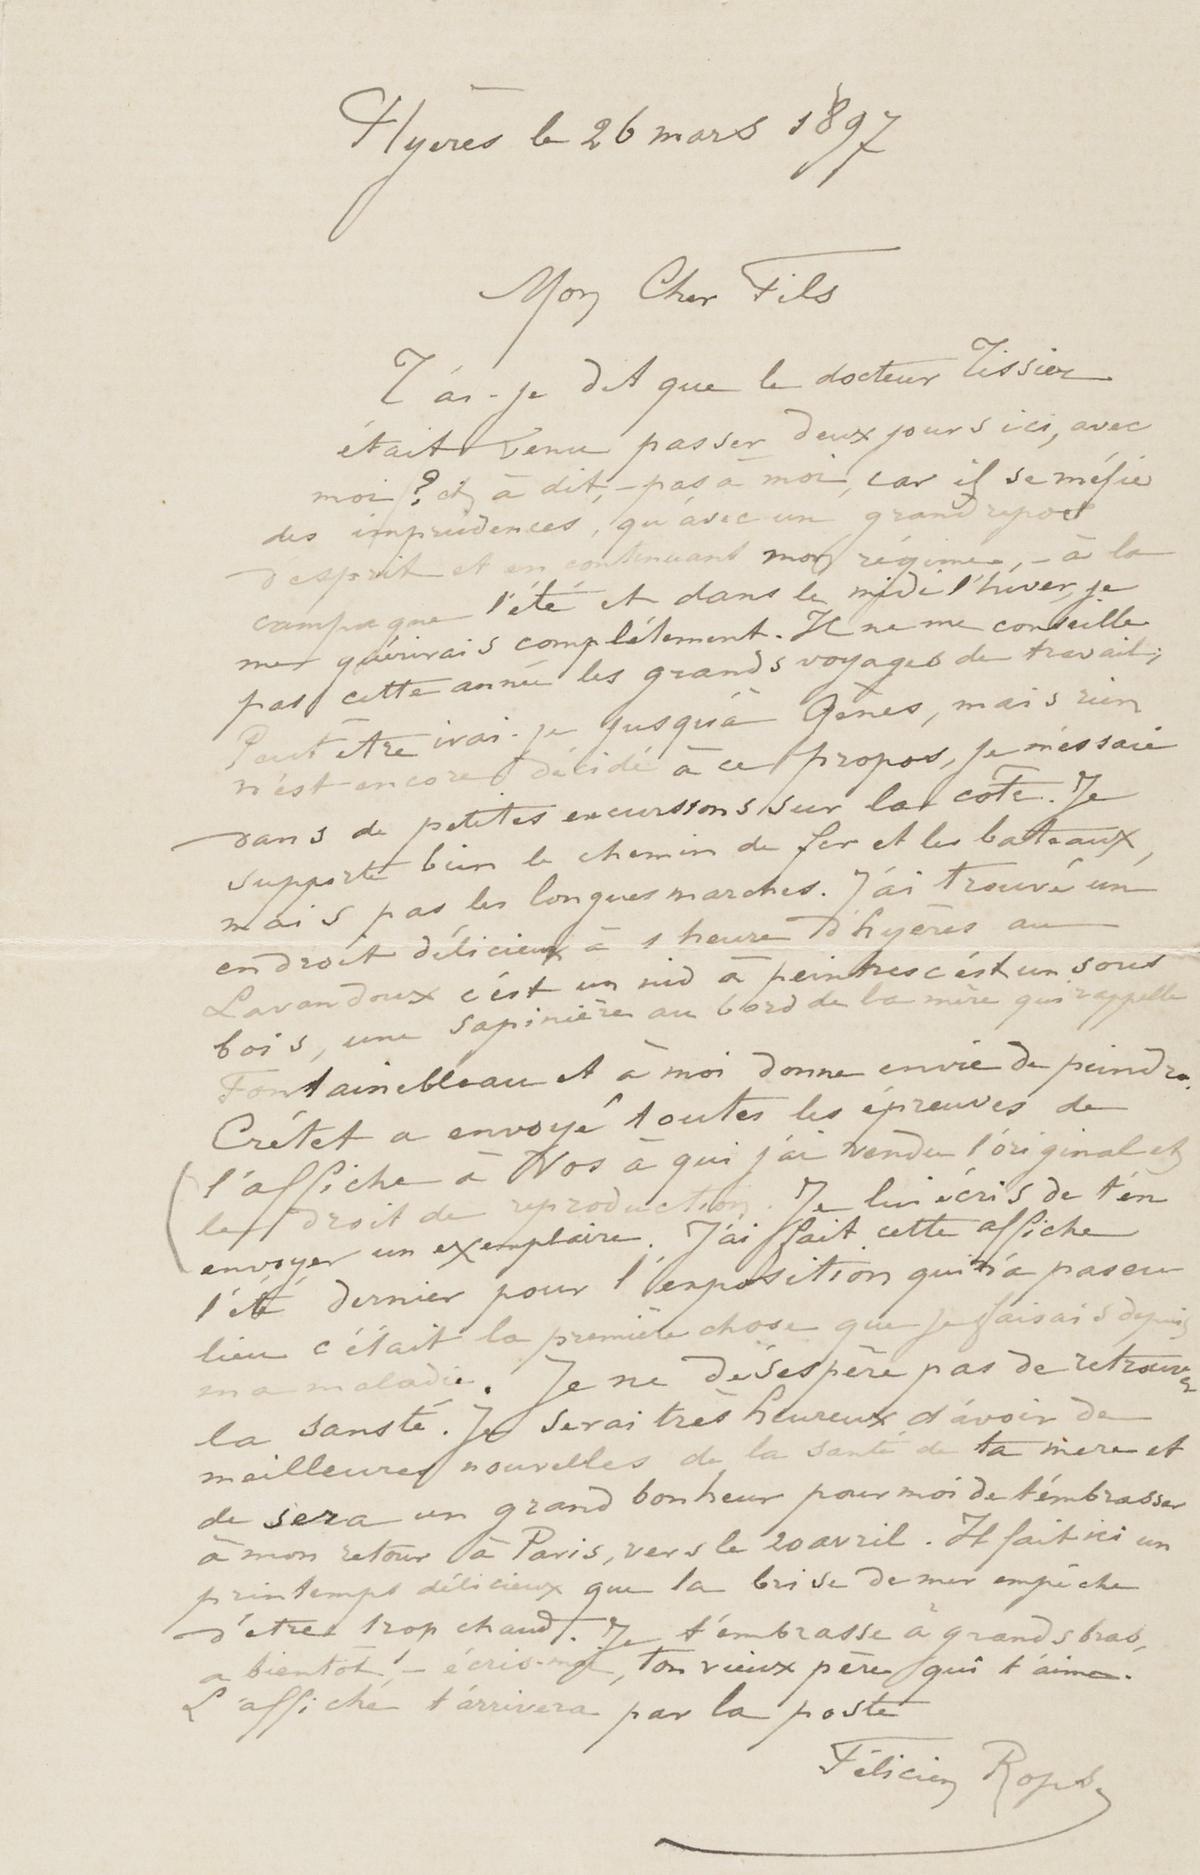 Hyères le 26 mars 1897
Mon Cher Fils
T'ai-je dit que le docteur Tissier
était venu passer deux jours ici, avec
moi ? et à dit, – pas à moi, car il se méfie
des imprudences, qu'avec un grand repos
d'esprit et en continuant mon régime, – à la
campagne l'été et dans le midi l'hiver, je
me guérirais complétement. Il ne me conseille
pas cette année les grands voyages de travail;
Peut être irai-je jusqu'à Gènes, mais rien
n'est encore décidé à ce propos, je m'essaie
dans de petites excurssons sur la côte. Je
supporte bien le chemin de fer et les bateaux,
mais pas les longues marches. J'ai trouvé un
endroit délicieux à 1 heure d'hyères au
Lavandoux c'est un nid à peintres c'est un sous
bois, une sapinière au bord de la mère qui rappelle
Fontainebleau et à moi donne envie de peindre.
Crétet a envoyé toutes les épreuves de
(l'affiche à Nos à qui j'ai vendu l'original et
le droit de reproduction. Je lui écris de t'en
envoyer un exemplaire. J'ai fait cette affiche
l'été dernier pour l'exposition qui n'a pas eu
lieu c'était la première chose que je faisais depuis
ma maladie. Je ne désespère pas de retrouver
la sansté. Je serai très heureux d'avoir de
meilleures nouvelles de la santé de ta mere et
de sera un grand bonheur pour moi de t'embrasser
à mon retour à Paris, vers le 20 avril. Il fait ici un
printemps délicieux que la brise de mer empêche
d'etre trop chaud. Je t'embrasse à grands bras,
a bientôt ! – écris-moi, ton vieux père qui t'aime.
L'affiche t'arrivera par la poste
Félicien Rops